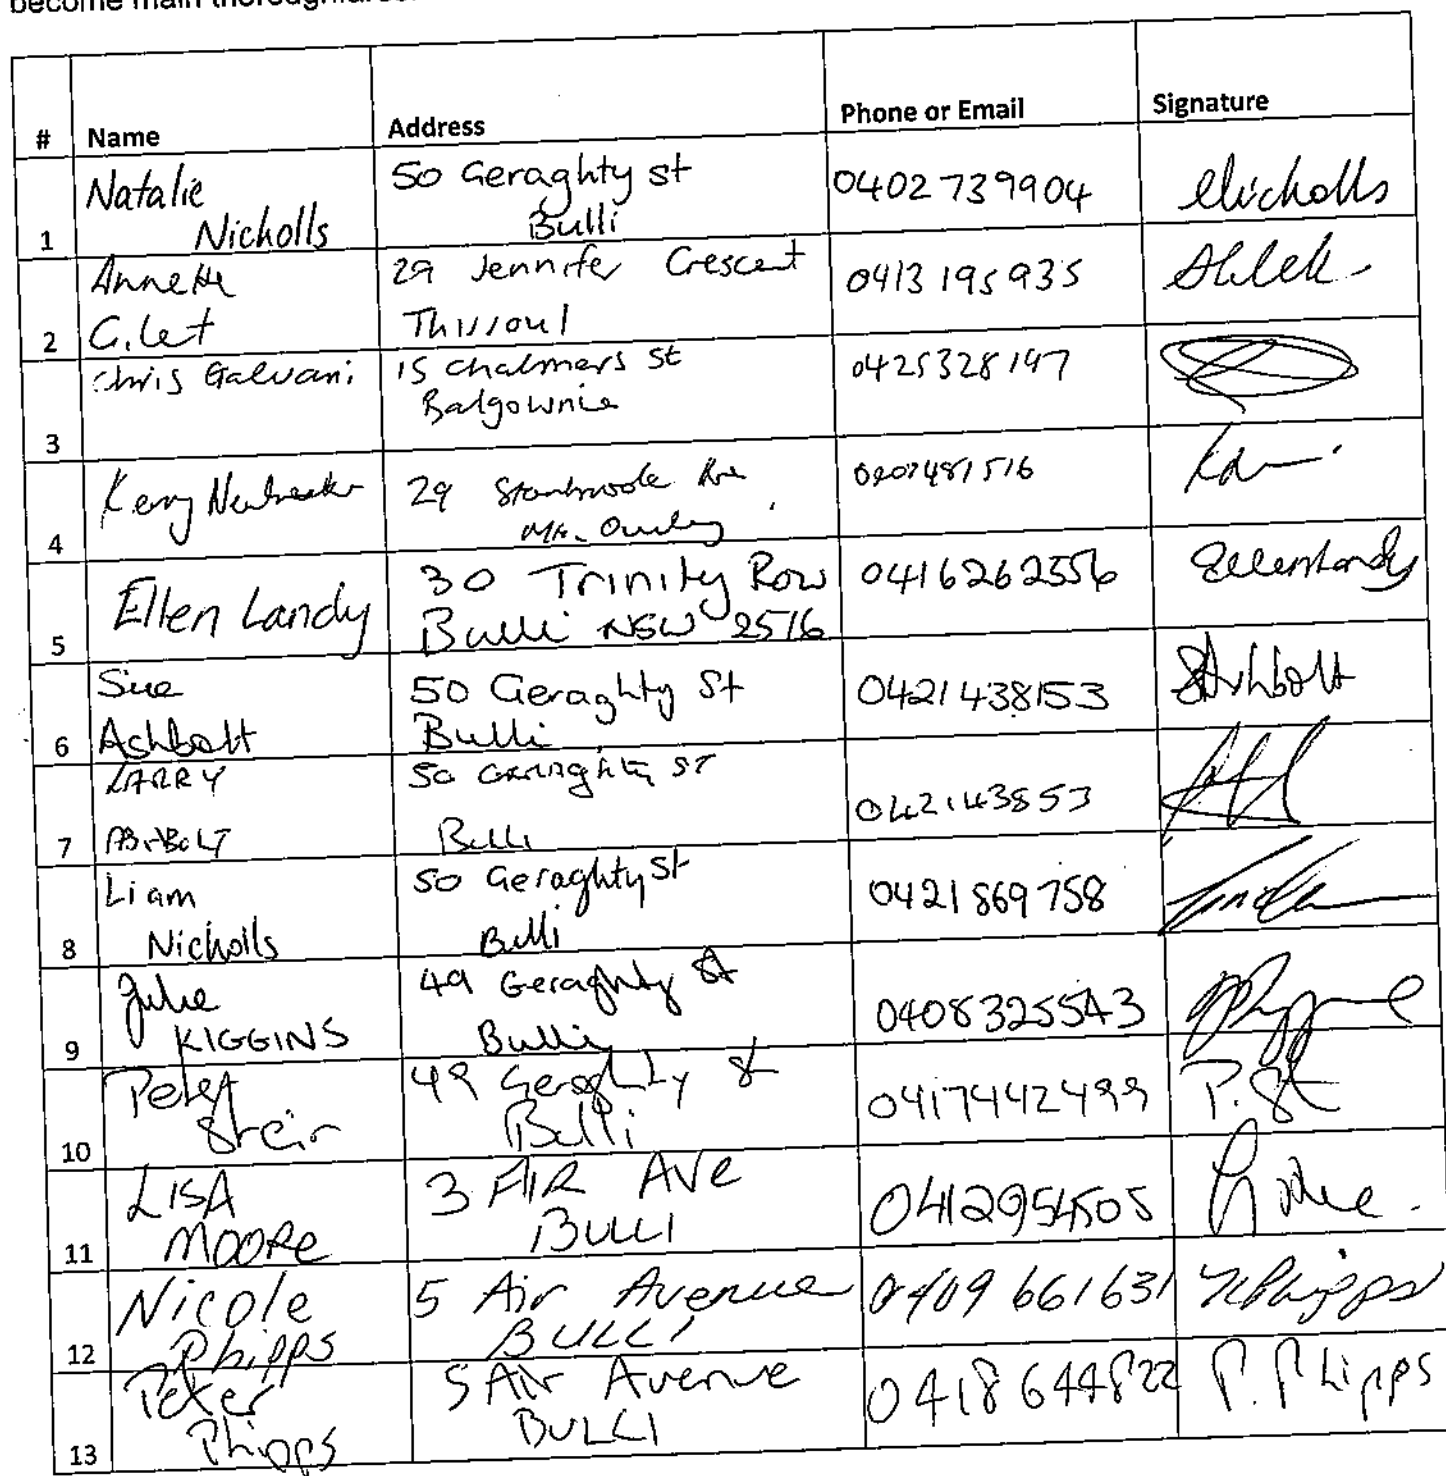 become main
# Name Address Phone or Email Signature
1 Natalie Nicholls 50 Geraghty St Bulli 0402 739904 Nicholls
2 Annette 29 Jennifer Crescent Thirroul 0413 195 935
3 Chris Galvani 15 Chalmers St Balgownie 0425328197
4 Kerry 29 Ave
5 Ellen Landy 30 Trinity Row Bulli NSW 2516 0416262556 Ellen Landy
6 Sue Ashbolt 50 Geraghty St Bulli 0421438153 SAshbolt
7 LARRY 50 Geraghty ST Bulli
8 Liam Nicholls 50 Geraghty St Bulli 0421869758
9 Julie KIGGINS 49 Geraghty St Bulli 0408325543
10 Peter 49 Geraghty St Bulli 0417442499
11 LISA MOORE 3 AIR AVE BULLI 0412954505
12 Nicole Phipps 5 Air Avenue BULLI 0409 661631 NPhipps
13 Peter Phipps 5 Air Avenue BULLI 0418 644822 P. Phipps